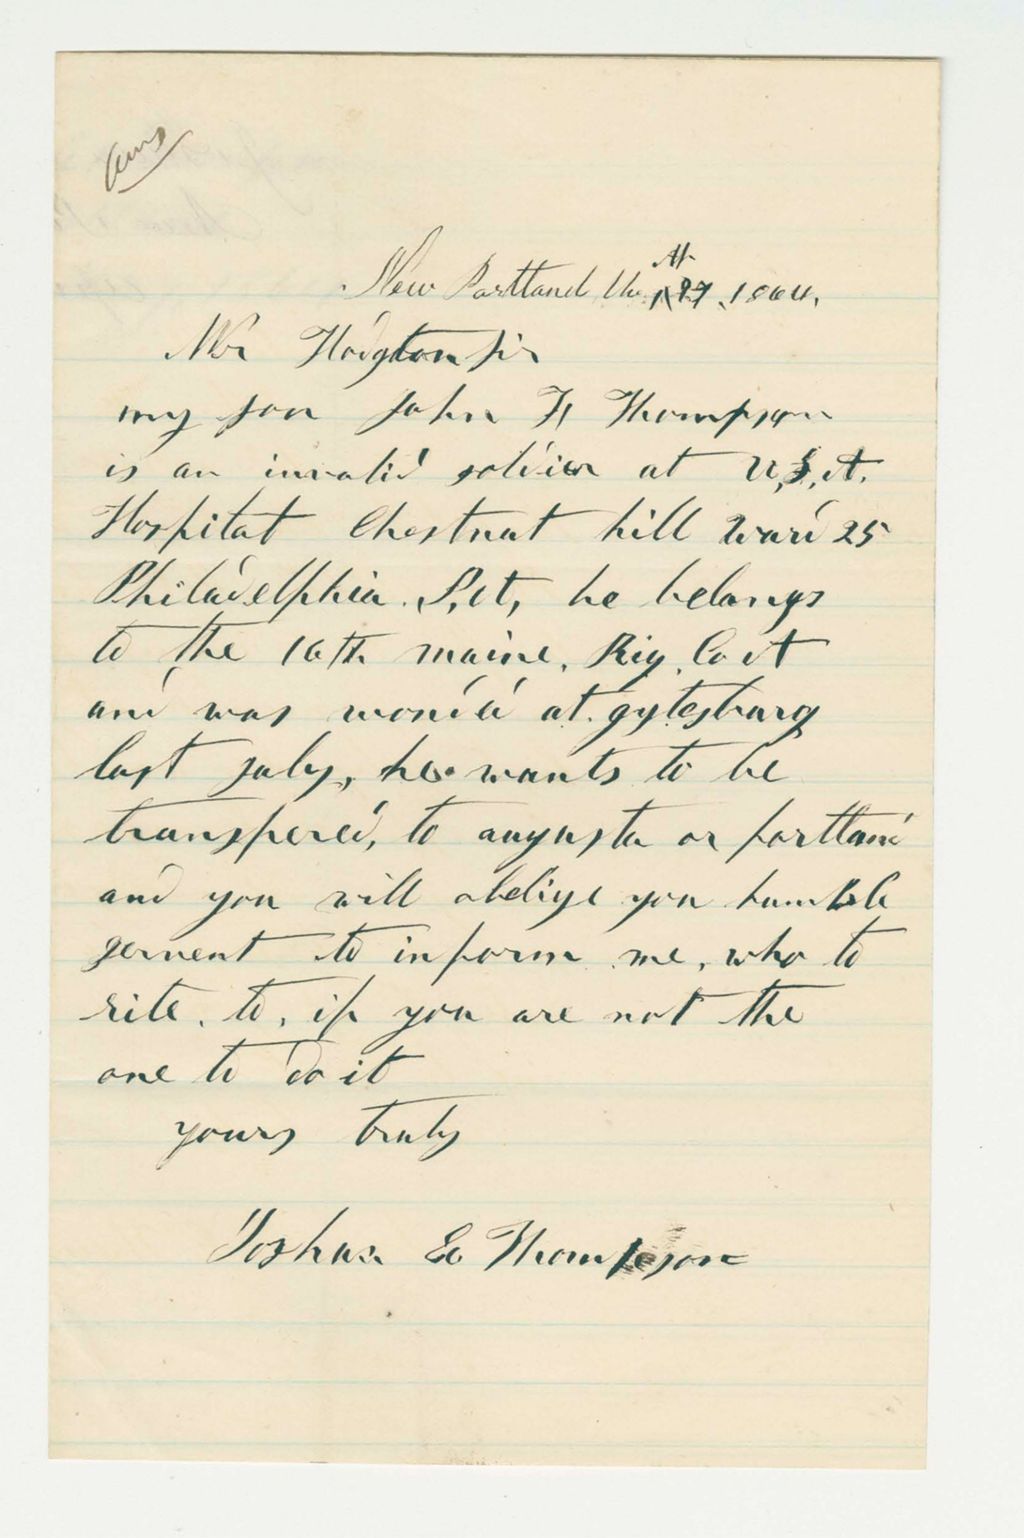 Ans
New Portland the 27, 1864,
Mr Hodgton sir
my son John F Thompson
is an invalid soldier at U,S,A.
Hospital Chestnut hill Ward 25
Philadelphia. P,A, he belongs
to the 16th maine, Rig, Co A
and was wonded at gytesburg
last july, he wants to be
transfered, to augusta or portland
and you will abelige you humble
servent to inform me, who to
rite. to, if you are not the
one to do it
yours truly
Joshua E Thompson